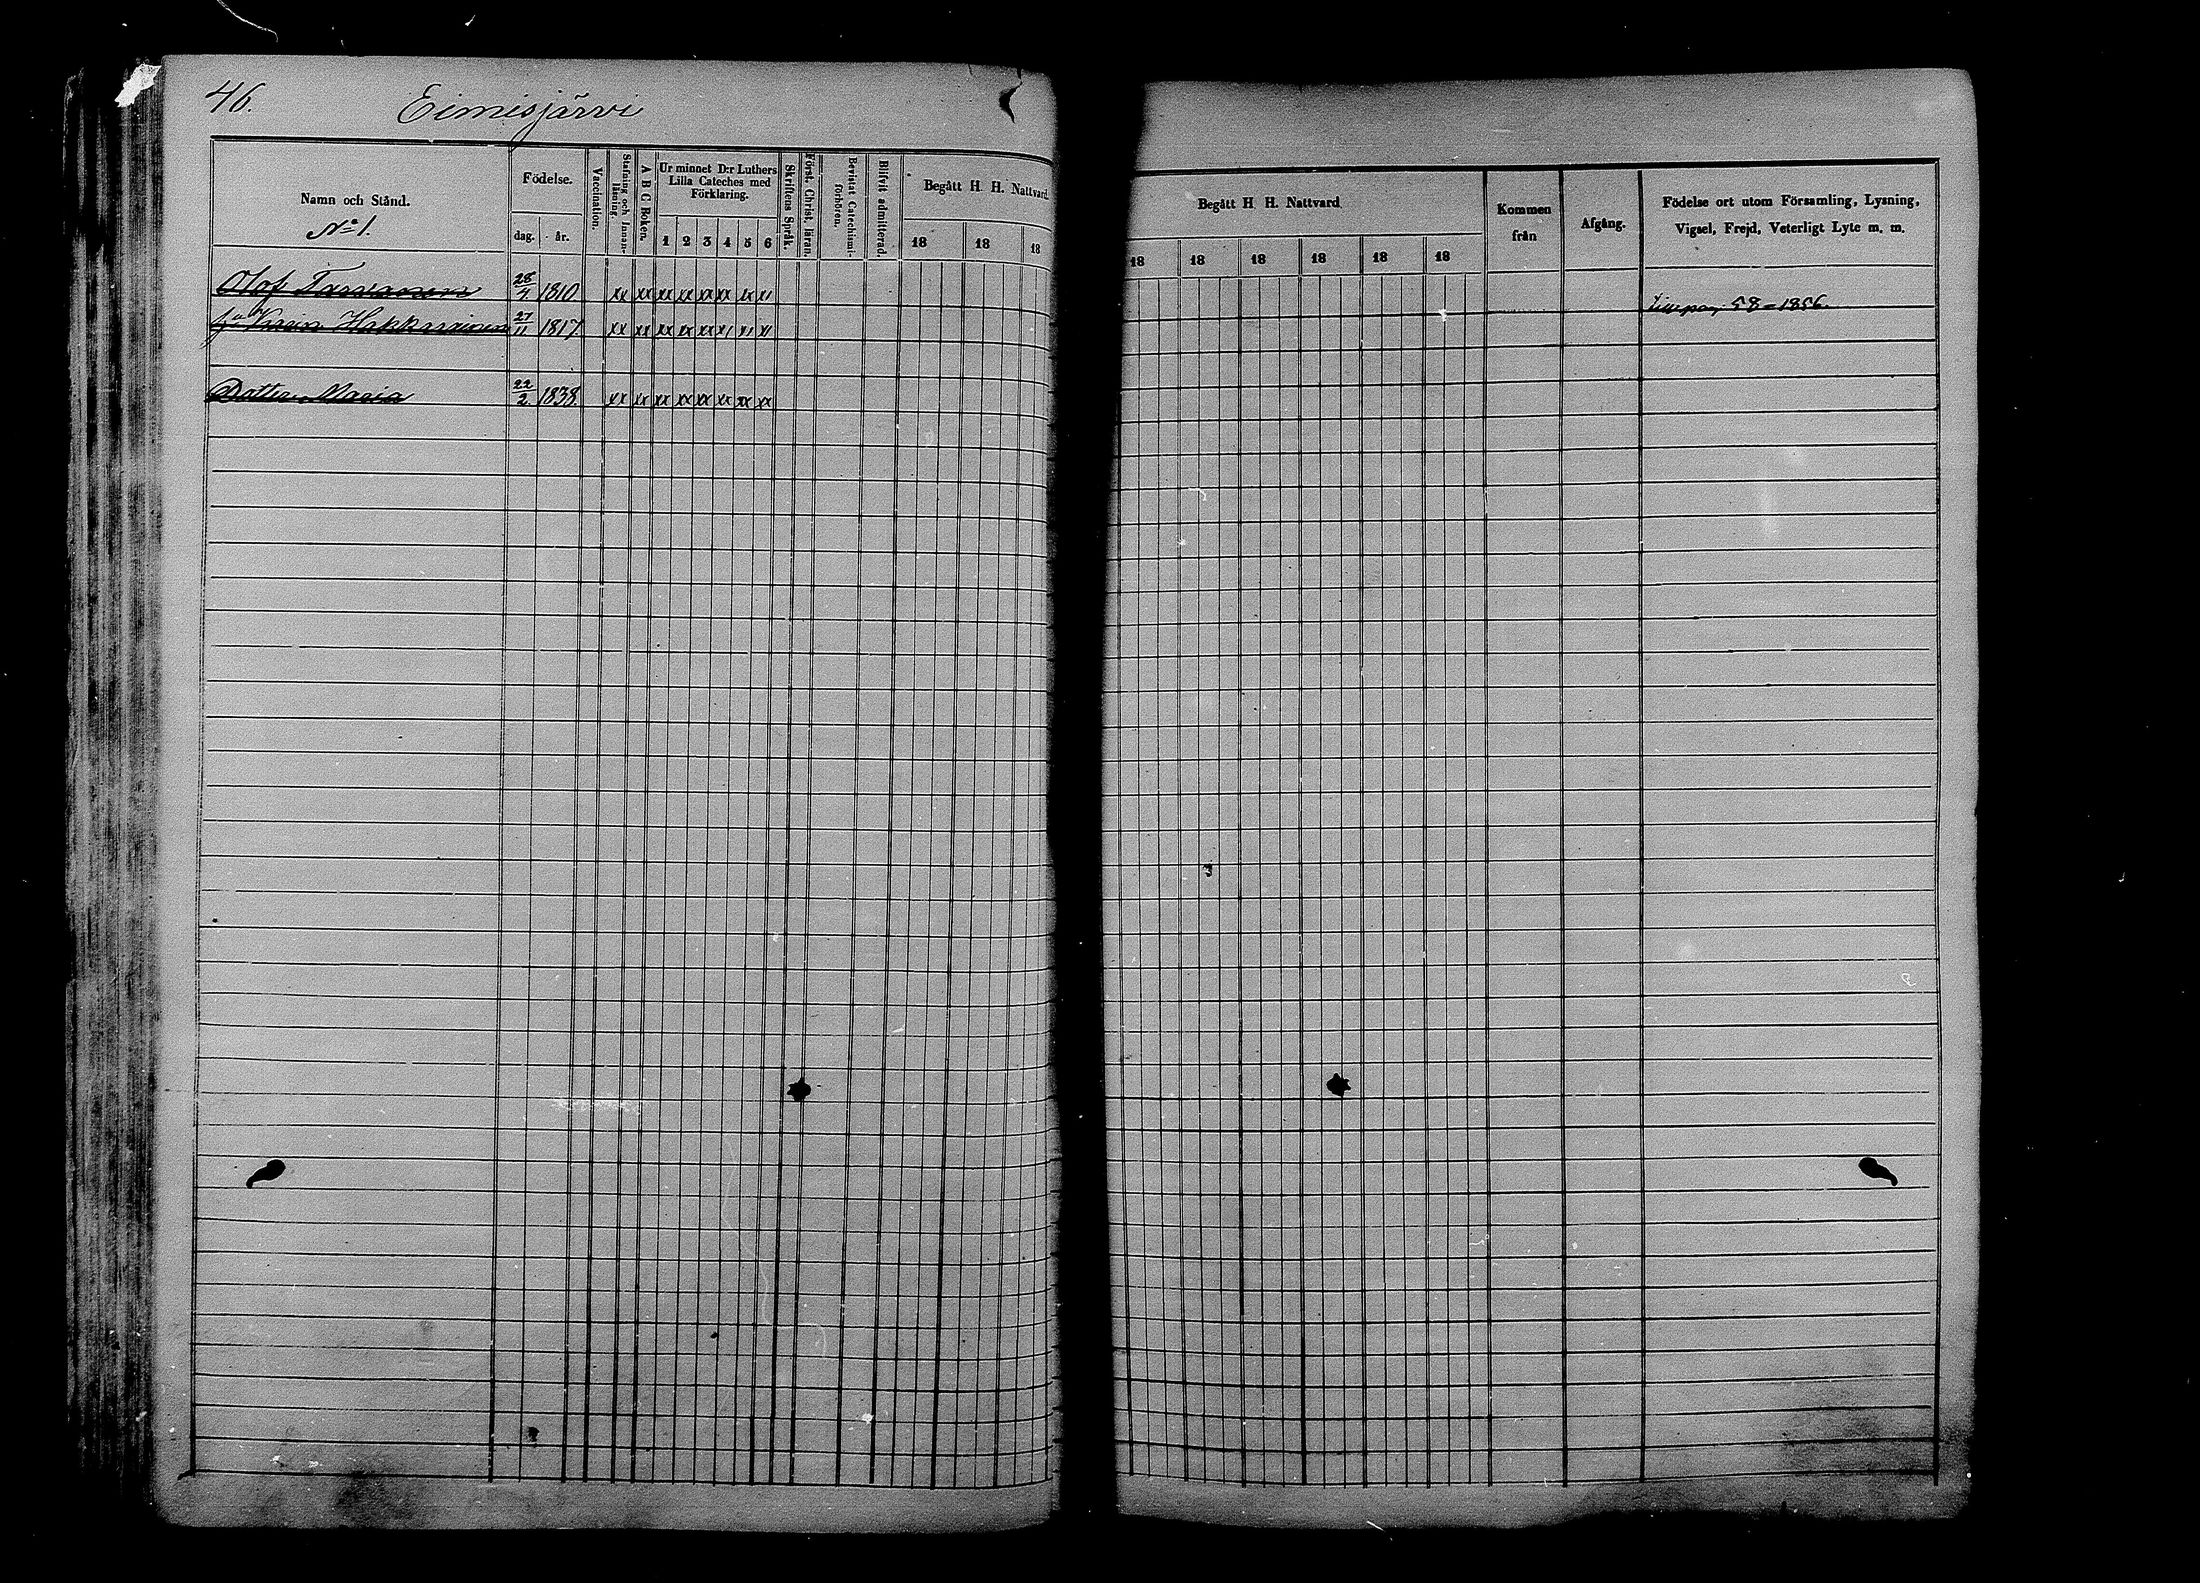 46. Eimisjärvi
Namn och Stånd.
No 1.
Födelse.
dag. år.
Vaccination.
Stafning och Innan-
läsning.
A B C Boken.
Ur minnet D:r Luthers
Lilla Cateches med
Förklaring.
1 2 3 4 5 6
Skriftens Språk.
Först. Christ. läran.
Bevistat Catechismi-
förhören.
Blifvit admitterad.
Begått H. H. Nattvard.
18 18 18
Begått H. H. Nattvard.
18 18 18 18 18 18
Kommen
från
Afgång.
Födelse ort utom Församling, Lysning,
Vigsel, Frejd, Veterligt Lyte m. m.
Olof 1810 xx xx xx xx xx xx xx xx 58 - 1856.
Karin 27/11 1817 xx xx xx xx xx
Dotter Maria 22/2 1838 xx xx xx xx xx xx xx xx